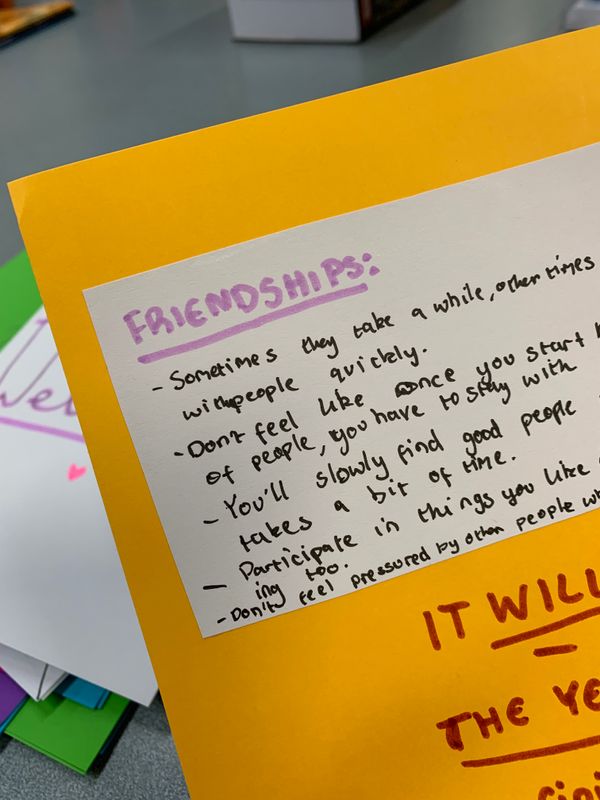 FRIENDSHIPS:
- Sometimes they take a while, other times
with people quickly.
- Don't feel like once you start
of people, you have to stay with
- You'll slowly find good people
takes a bit of time.
- Participate in things you like
ing too.
- Don't feel pressured by other people
IT WILL
THE YE
Wel